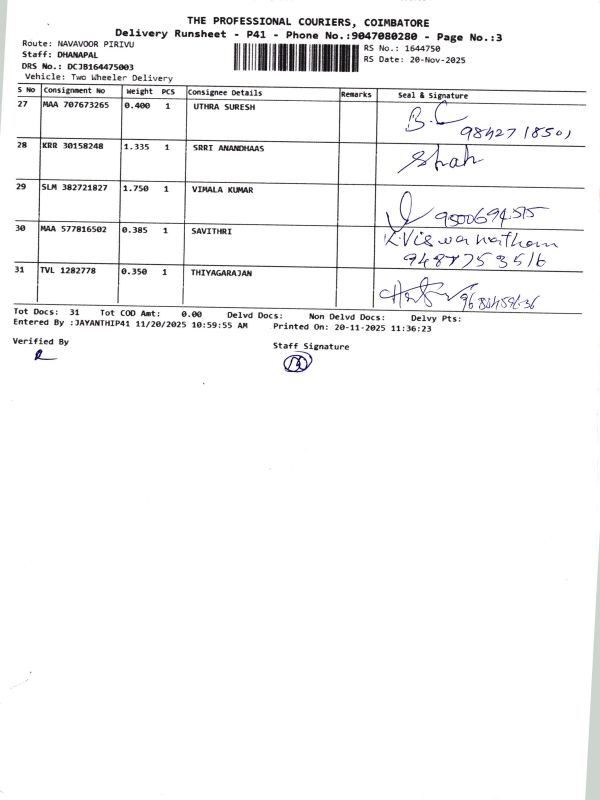 THE PROFESSIONAL COURIERS, COIMBATORE
Delivery Runsheet - P41 - Phone No.:9047080280 - Page No.:3
Route: NAVAVOOR PIRIVU RS No.: 1644750
Staff: DHANAPAL RS Date: 20-Nov-2025
DRS No.: DCJB164475003
Vehicle: Two Wheeler Delivery
S No Consignment No Weight PCS Consignee Details Remarks Seal & Signature
27 MAA 707673265 0.400 1 UTHRA SURESH B.C
28 KRR 30158248 1.335 1 SRRI ANANDHAAS
29 SLM 382721827 1.750 1 VIMALA KUMAR
30 MAA 577816502 0.385 1 SAVITHRI K.Viswanatham
9487753516
31 TVL 1282778 0.350 1 THIYAGARAJAN
Tot Docs: 31 Tot COD Amt: 0.00 Delvd Docs: Non Delvd Docs: Delvy Pts:
Entered By :JAYANTHIP41 11/20/2025 10:59:55 AM Printed On: 20-11-2025 11:36:23
Verified By
Staff Signature